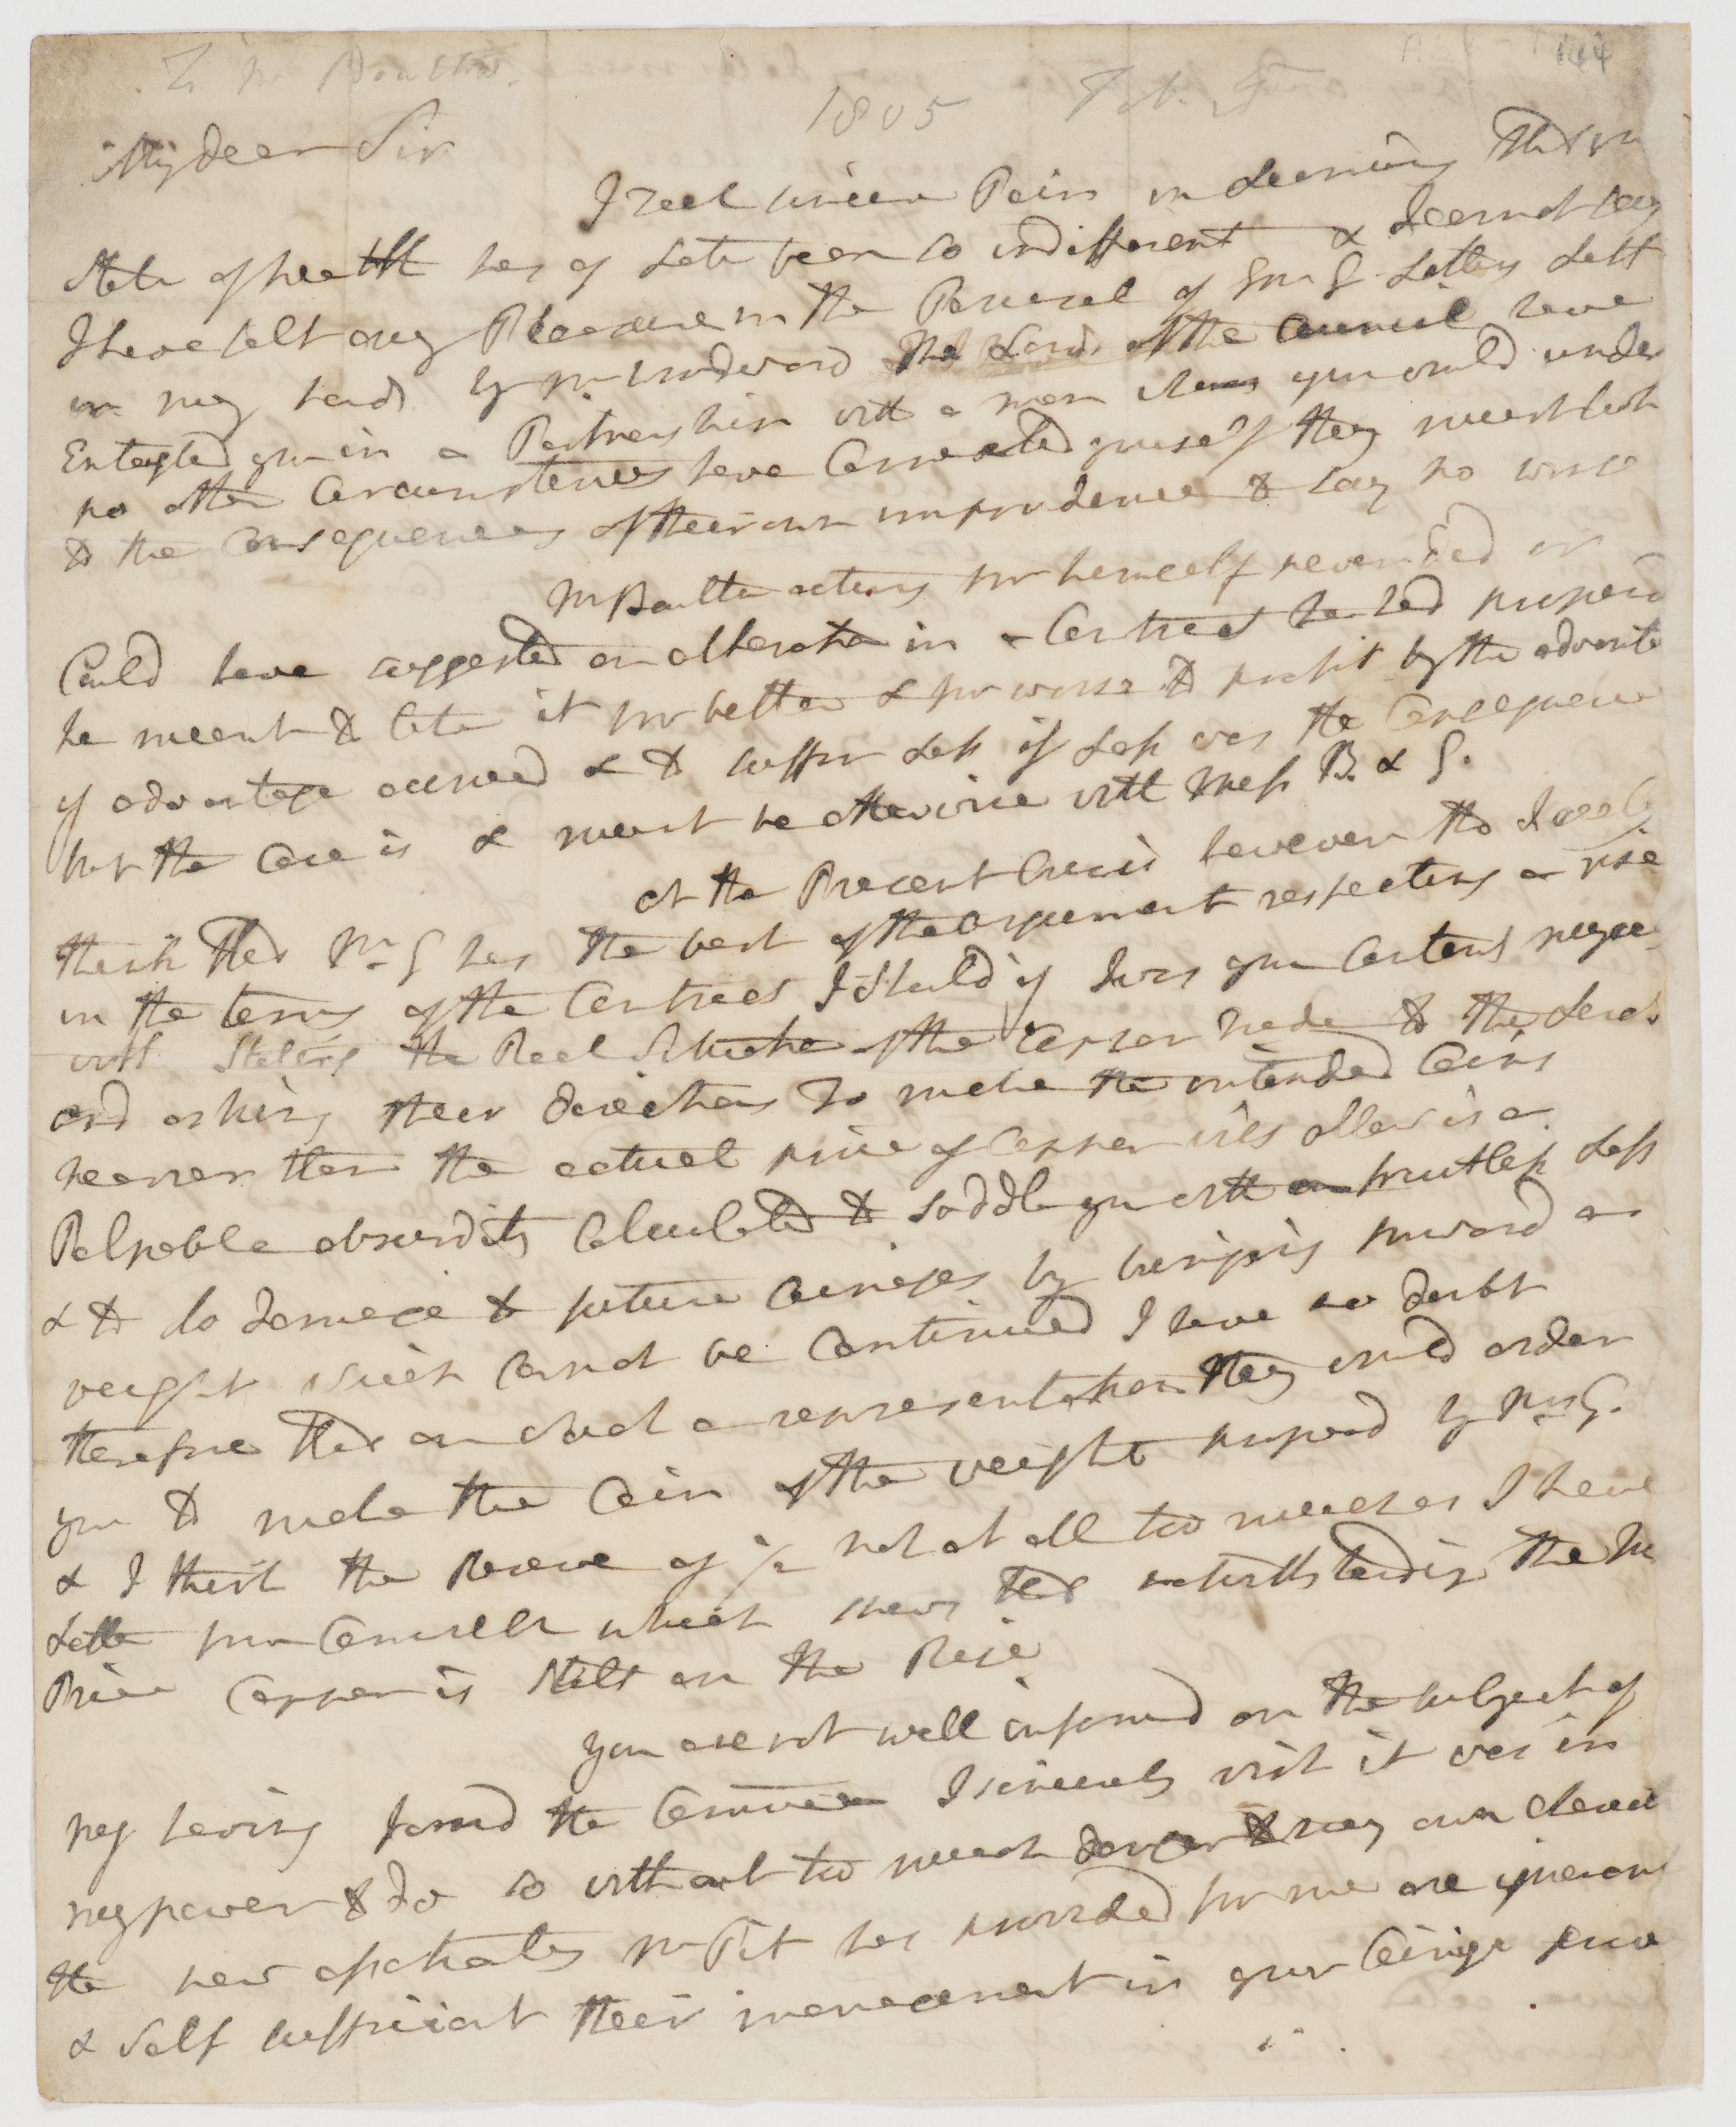 To Mr Boulton.
1805 Feb.
My dear Sir
I Feel sincere Pain in Learning that yr
state of health has of Late been so indifferent & I cannot say
I have felt any Pleasure in the Perusal of Mr G Letters Left
in my hands by Mr Woodward The Lords of the Council have
Entangled you in a Partnership with a man whom you would under
no other Circumstances have Connected yourself they must look
to the Consequences of their own imprudence to say no worse
Mr Boulton acting for himself never did or
Could have suggested an alteration in a Contract he had proposd
he meant to take it for better & for worse to profit by the advantage
if advantage accrued & to suffer Loss if Loss was the Consequence
but the Case is & must be otherwise with Messrs B. & G.
at the Present Crisis however tho I really
think that Mr G has the best of the argument respecting a rise
in the terms of the Contract I should if I was you Content myself
with Stating the Real Situation of the Copper trade to the Lords
and asking their directions To make the intended Coins
heavier than the actual price of Copper will allow is a
Palpable absurdity Calculated to saddle you with a fruitless Loss
& to do damage to future Coinages by bringing forward a
weight which Cannot be Continued I have no doubt
therefore that on such a representation they would order
you to make the Coin of the weight proposd by Mr G.
& I think the Reserve of not at all too much as I have
Letter from Cornwall which shews that notwithstanding the
Price Copper is Still on the Rise
you are not well informd on the subject of
my having Joind the Committee I sincerely wish it was in
my power to do so without too much danger to my own
the new apothecaries Mr Pitt has provided for me are ignorant
& Self sufficient their management in your Coinage